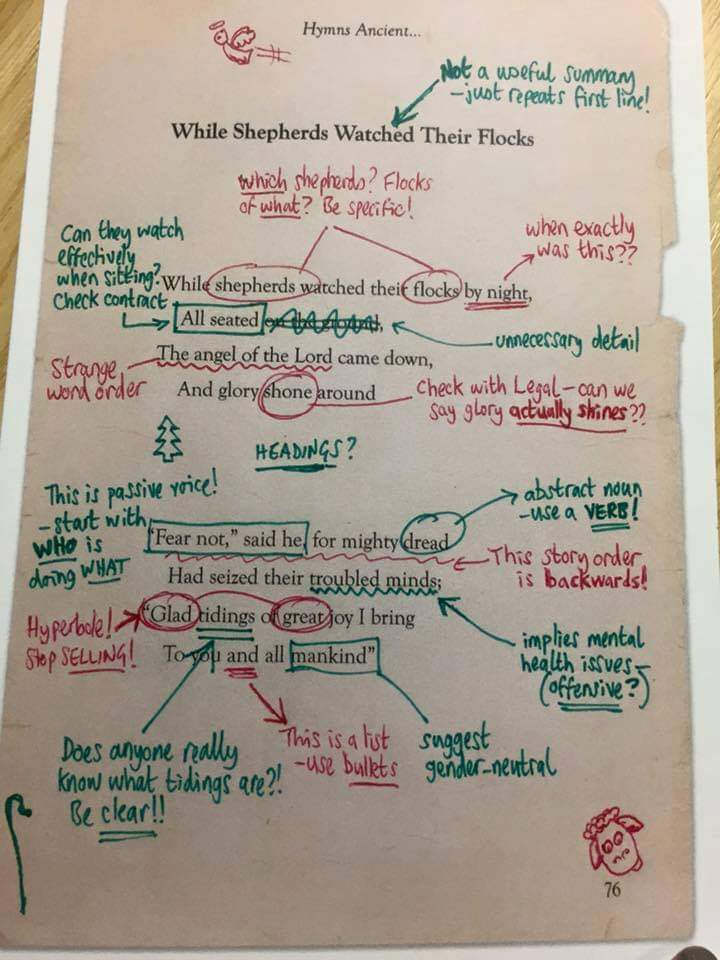 Hymns Ancient...
Not a useful summary
- just repeats first line!
While Shepherds Watched Their Flocks
which shepherds? Flocks
of what? Be specific!
Can they watch
effectively
when sitting?
Check contract
when exactly
was this??
While shepherds watched their flocks by night,
All seated on the ground,
unnecessary detail
The angel of the Lord came down,
Strange
word order
And glory shone around
Check with Legal - can we
say glory actually shines??
HEADINGS?
This is passive voice!
- start with
WHO is
doing WHAT
abstract noun
- use a VERB!
"Fear not," said he, for mighty dread
This story order
is backwards!
Had seized their troubled minds;
Hyperbole!
Stop SELLING!
"Glad tidings of great joy I bring
To you and all mankind"
implies mental
health issues -
(offensive?)
Does anyone really
know what tidings are?!
Be clear!!
This is a list
- use bullets
suggest
gender-neutral
76